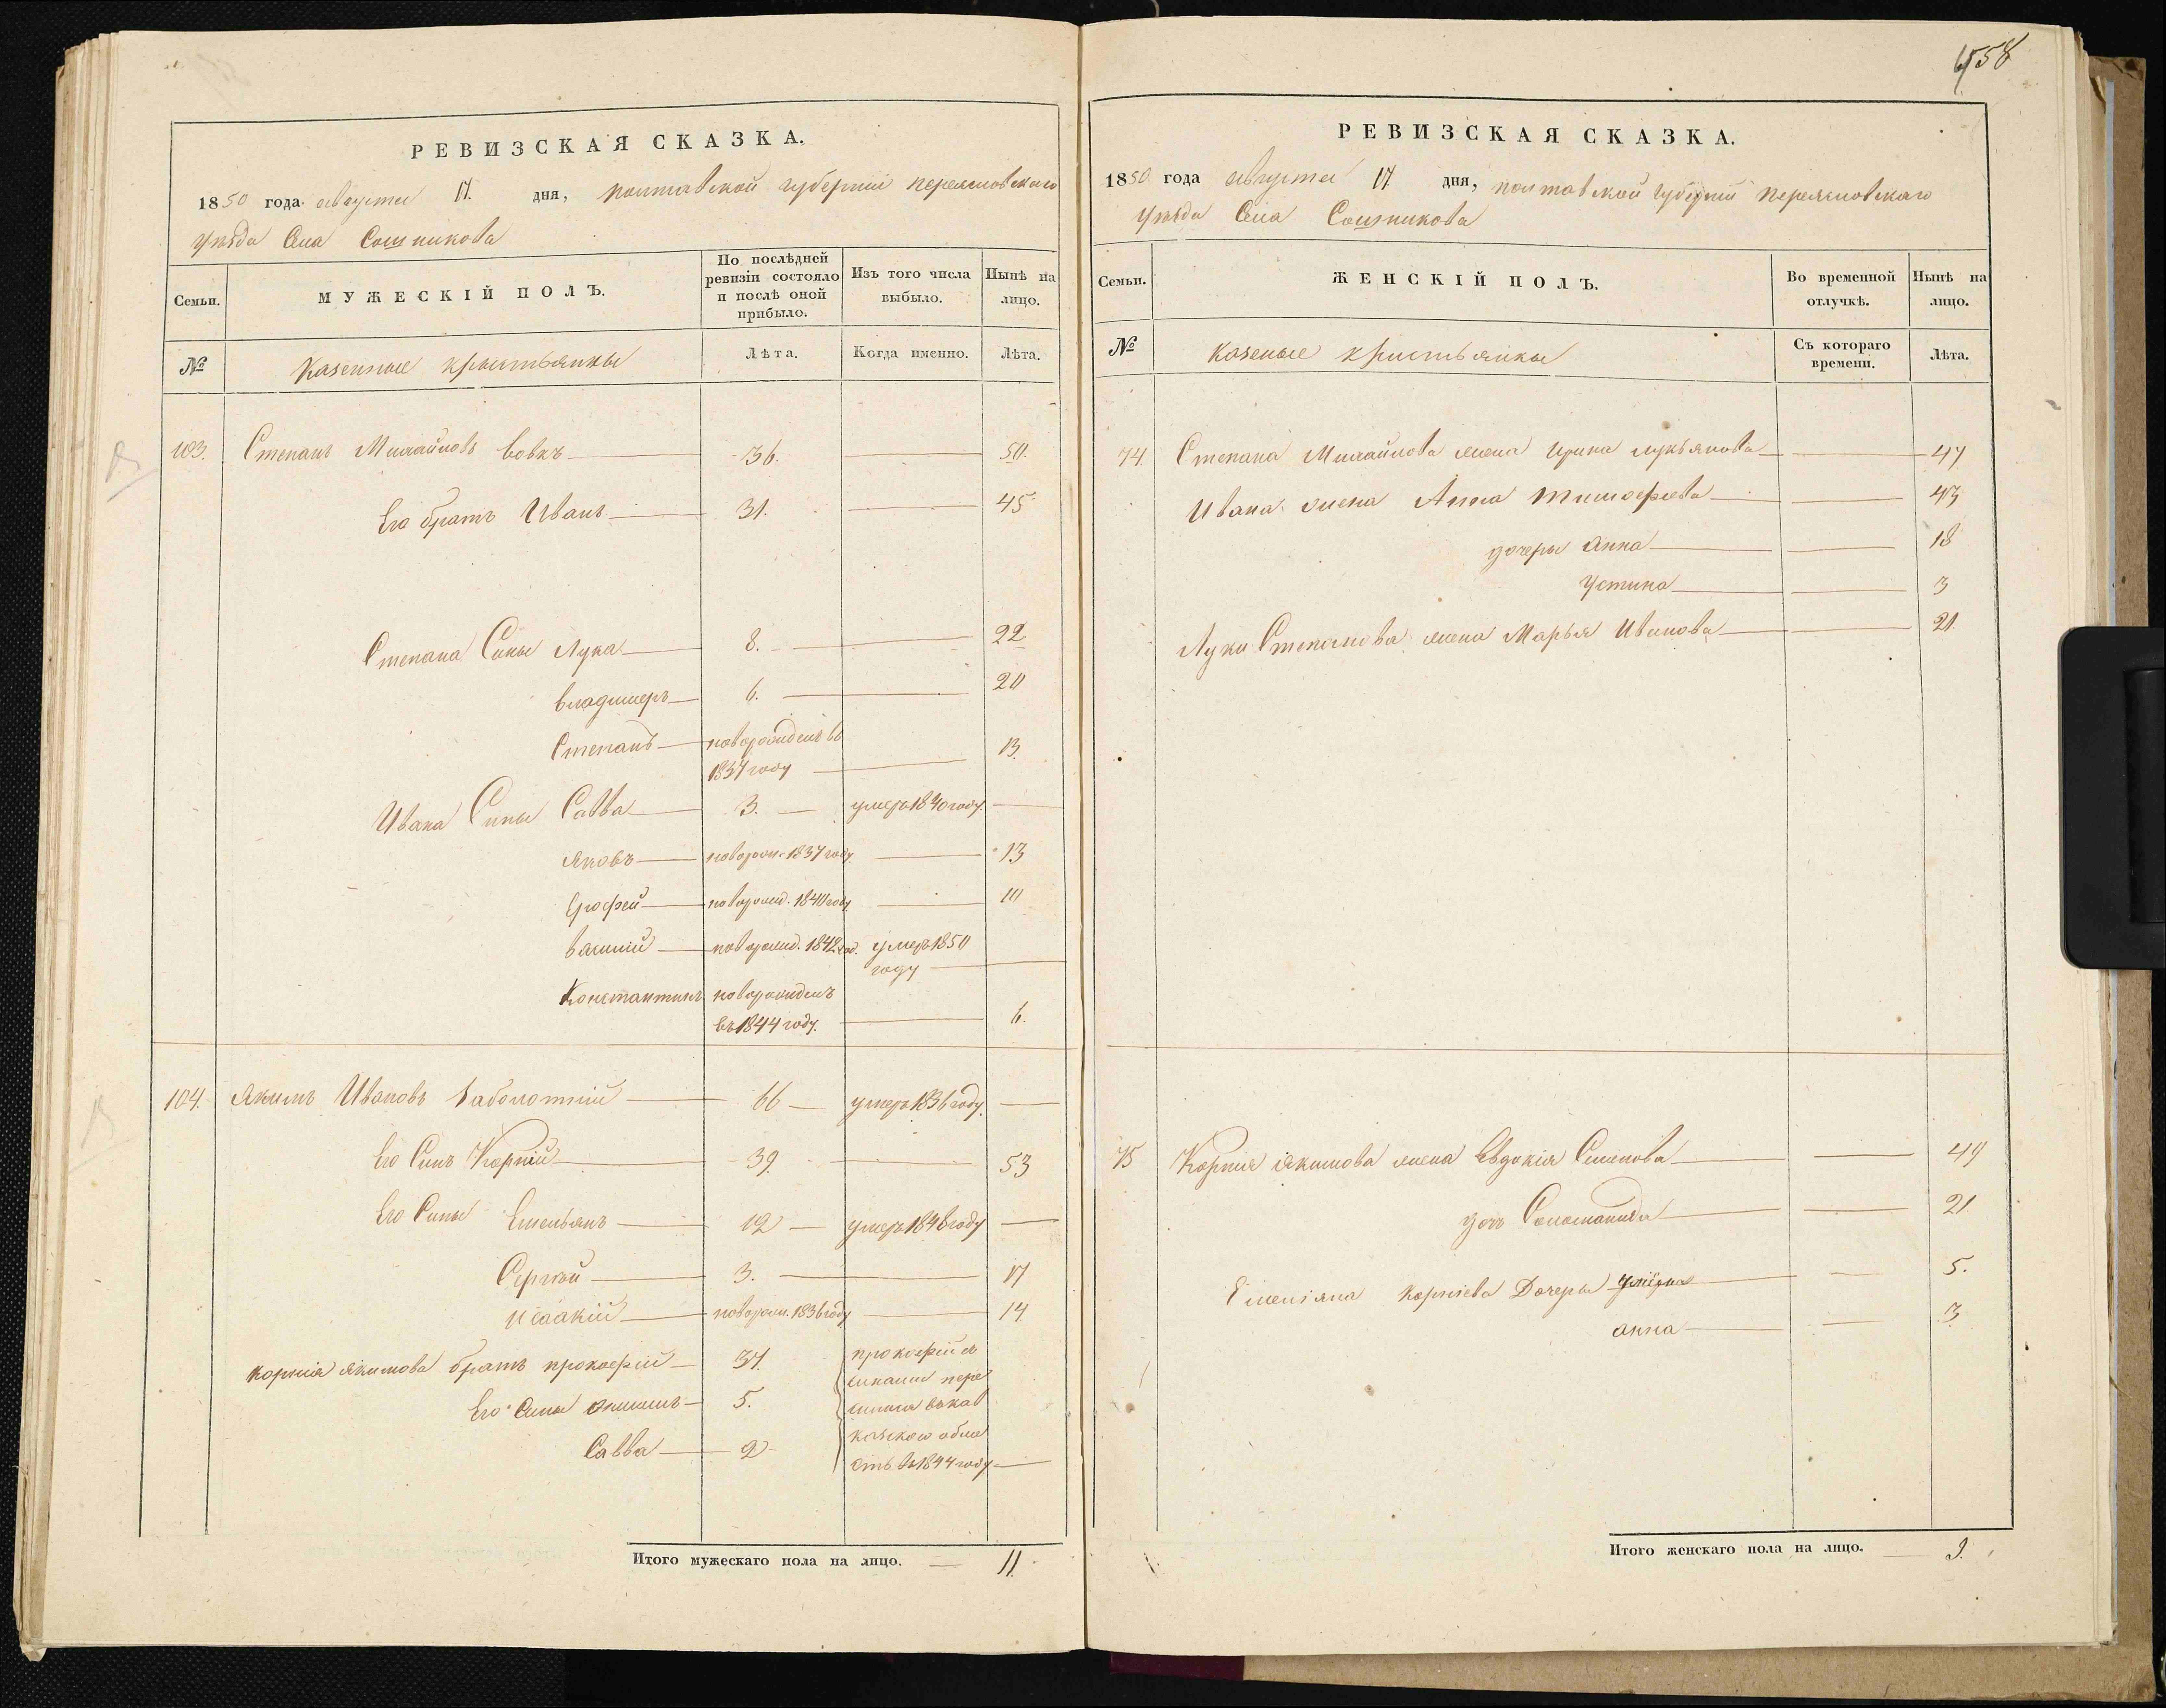 458
РЕВИЗСКАЯ СКАЗКА.
1850 года августа 17. дня, полтавской губернии переясловского
уезда Села Сошникова
Семьи.
МУЖЕСКІЙ ПОЛЪ.
По послѣдней ревизіи состояло и послѣ оной прибыло.
Изъ того числа выбыло.
Нынѣ на лицо.
№
Казенные крестьянны
Лѣта.
Когда именно.
Лѣта.
103. Степанъ Михайловъ Вовкъ 36. 50.
Его братъ Иванъ 31. 45
Степана Сины Лука 8. 22
Владимеръ 6. 20
Степанъ новорожденъ въ
1837 году 13.
Ивана Сины Савва 3. умеръ 1840 году.
Яковъ новорож. 1837 году 13
Ерофей новорожд. 1840 году 10
новорожд. 1842 год. умеръ 1850
году
Константинъ новорожденъ
въ 1844 году. 6.
104. Якимъ Ивановъ Заболотній 66 умеръ 1836 году.
Его Синъ Корній 39 53
Его Сины Емельянъ 12 умеръ 1846 году
Сергѣй 3. 17
Исаакій новорож. 1836 году 14
Корнія Якимова братъ прокофій 37. прокофий с
Его Сины 5. синами пере
Савва 2 въ кав
казскою обла
сть въ 1844 году
Итого мужескаго пола на лицо. 11.
РЕВИЗСКАЯ СКАЗКА.
1850 года августа 17 дня, полтавской губернии переясловскаго
уезда Села Сошникова
Семьи.
ЖЕНСКІЙ ПОЛЪ.
Во временной отлучкѣ.
Нынѣ на лицо.
№
Казеные кристьянки
Съ котораго времени.
Лѣта.
74. Степана Михайлова жена Ирина лукьянова 47
Ивана жена Анна Тимофеева 43
дочеры Анна 18
Устина 3
Луки Степанова жена Марья Иванова 21.
75 Корнія Якимова жена Евдокія Семенова 49
дочь Соломанида 21
Емеліяна Корніева Дочеры 5.
анна 3
Итого женскаго пола на лицо. 9.